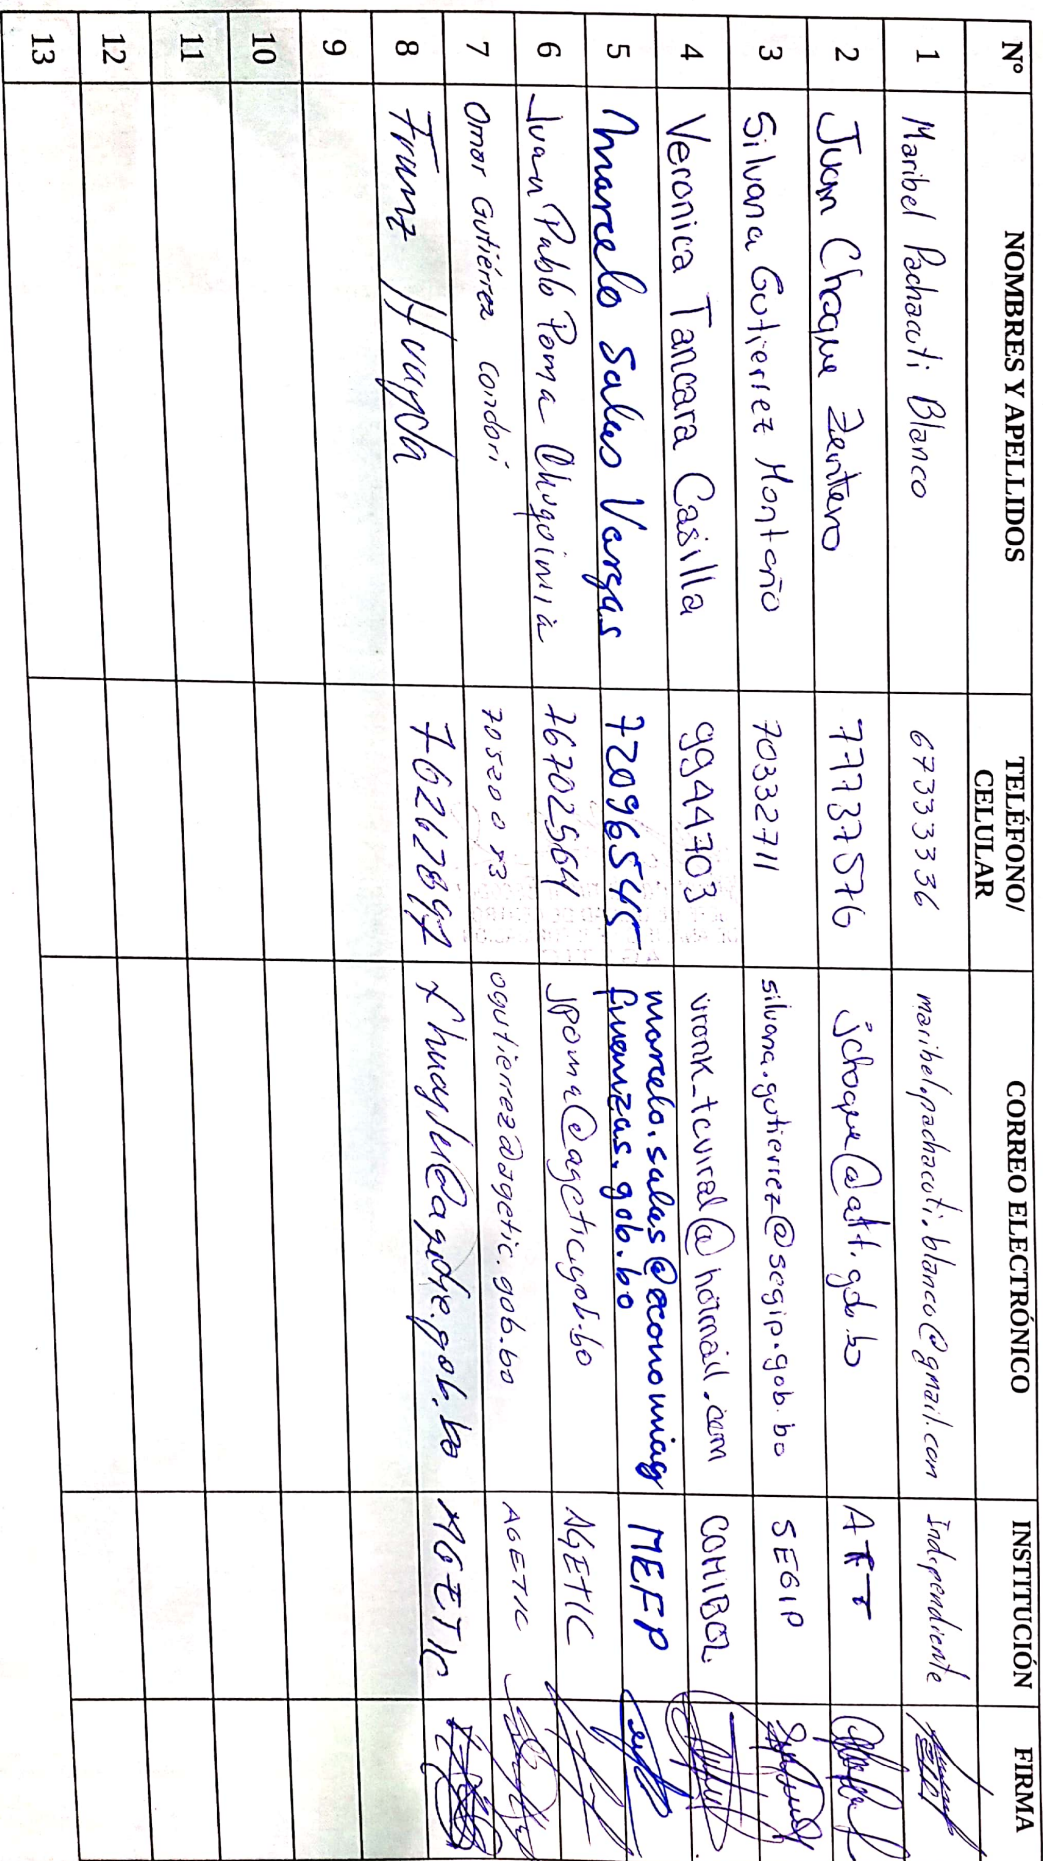 Nº NOMBRES Y APELLIDOS TELÉFONO/ CELULAR CORREO ELECTRÓNICO INSTITUCIÓN FIRMA
1 Maribel Pachacuti Blanco 67333336 maribel.pachacuti.blanco@gmail.com Independiente
2 Juan Choque Zenteno 77737576 jchoque@att.gob.bo ATT
3 Silvana Gutierrez Montaño 70332711 silvana.gutierrez@segip.gob.bo SEGIP
4 Veronica Tancara Casilla 9944703 vronk_tcviral@hotmail.com COMIBOL
5 Marcelo Salas Vargas 72096545 marcelo.salas@economiay
finanzas.gob.bo MEFP
6 Juan Pablo Poma Chuquimia 76702564 jpoma@agetic.gob.bo AGETIC
7 Omar Gutiérrez Condori 70520083 ogutierrez@agetic.gob.bo AGETIC
8 Franz 76267897 AGETIC
9
10
11
12
13